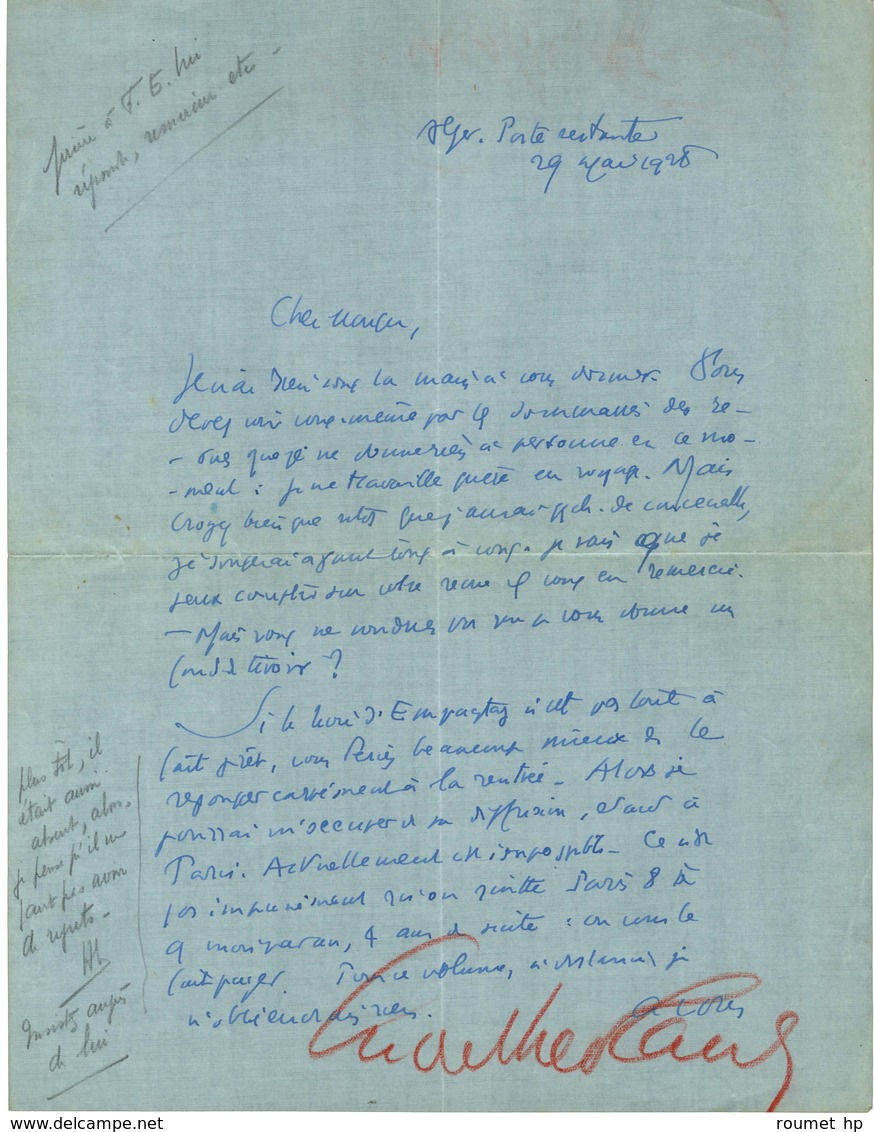 prière à F. E. lui
répondre, remercier etc -
Alger. Poste restante
29 mai 1928
Cher
Je n'ai rien sous la main à vous donner. Vous
devez voir vous-même par le sommaire des re-
- vues que je ne donne rien à personne en ce mo-
- ment : je ne travaille guère en voyage. Mais
croyez bien que sitôt que j'aurai qqch. de convenable,
je songerai avant tout à vous. Je sais que je
peux compter sur votre revue et vous en remercie.
- Mais vous ne voudriez pas que je vous donne un
fond de tiroir ?
Si le livre d' n'est pas tout à
fait prêt, vous feriez beaucoup mieux de le
reporter carrément à la rentrée - Alors je
pourrai m'occuper de sa diffusion, étant à
Paris. Actuellement c'est impossible - Ce n'est
pas impunément qu'on quitte Paris 8 à
9 mois par an, 4 ans de suite : on vous le
fait payer. Pour ce volume, à distance, je
n'obtiendrais rien. à vous
plus tôt, il
était aussi
absent, alors
je pense qu'il ne
faut pas avoir
de regrets -
Insistez auprès
de lui
roumet hp